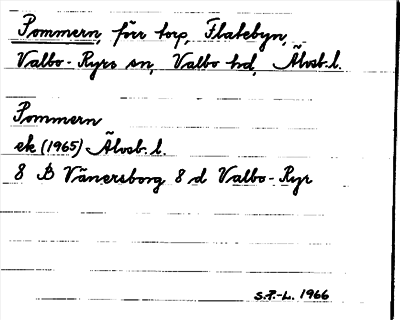 Pommern, förr torp, Flatebyn,
Valbo-Ryrs sn, Valbo hd, Älvsb. l.
Pommern
ek (1965) Älvsb. l.
8 B Vänersborg 8 d Valbo-Ryr
S.F.-L. 1966